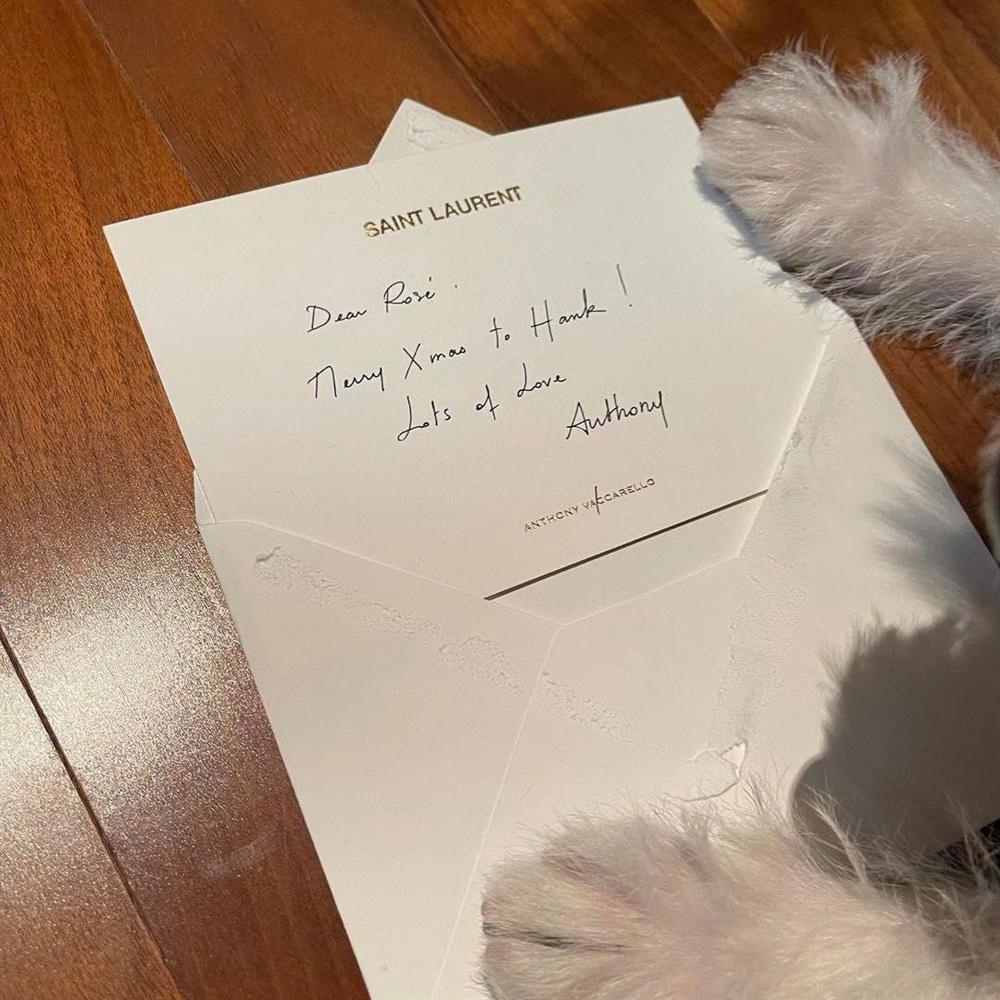 SAINT LAURENT
Dear Rosé.
Merry Xmas to Hank!
Lots of Love
Anthony
ANTHONY VACCARELLO